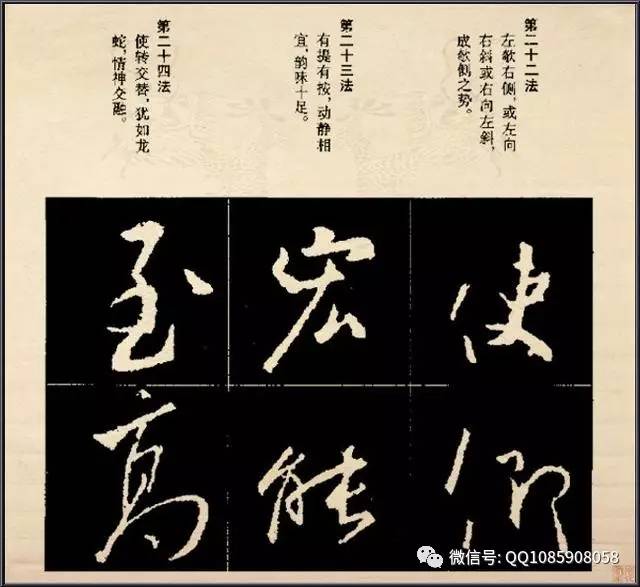 第二十二法
左欹右侧，或左向
右斜或右向左斜，
成欹侧之势。
第二十三法
有提有按，动静相
宜，韵味十足。
第二十四法
使转交替，犹如龙
蛇，情神交融。
使仰
宏能
至高
微信号: QQ1085908058